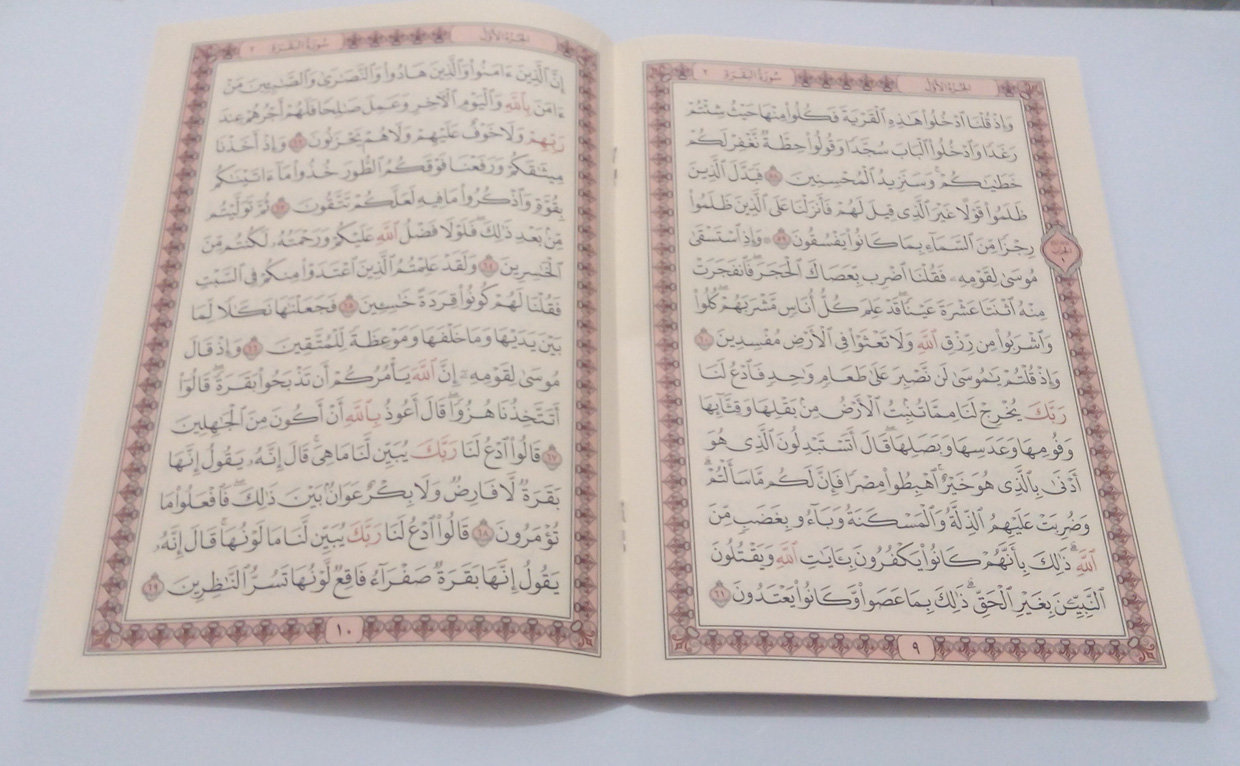 الجزء الأول
سورة البقرة ٢
وَإِذْ قُلْنَا ٱدْخُلُوا۟ هَٰذِهِ ٱلْقَرْيَةَ فَكُلُوا۟ مِنْهَا حَيْثُ شِئْتُمْ
رَغَدًا وَٱدْخُلُوا۟ ٱلْبَابَ سُجَّدًا وَقُولُوا۟ حِطَّةٌ نَّغْفِرْ لَكُمْ
خَطَٰيَٰكُمْ ۚ وَسَنَزِيدُ ٱلْمُحْسِنِينَ ٥٨ فَبَدَّلَ ٱلَّذِينَ
ظَلَمُوا۟ قَوْلًا غَيْرَ ٱلَّذِى قِيلَ لَهُمْ فَأَنزَلْنَا عَلَى ٱلَّذِينَ ظَلَمُوا۟
رِجْزًا مِّنَ ٱلسَّمَآءِ بِمَا كَانُوا۟ يَفْسُقُونَ ٥٩ ۞ وَإِذِ ٱسْتَسْقَىٰ
مُوسَىٰ لِقَوْمِهِۦ فَقُلْنَا ٱضْرِب بِّعَصَاكَ ٱلْحَجَرَ ۖ فَٱنفَجَرَتْ
مِنْهُ ٱثْنَتَا عَشْرَةَ عَيْنًا ۖ قَدْ عَلِمَ كُلُّ أُنَاسٍ مَّشْرَبَهُمْ ۖ كُلُوا۟
وَٱشْرَبُوا۟ مِن رِّزْقِ ٱللَّهِ وَلَا تَعْثَوْا۟ فِى ٱلْأَرْضِ مُفْسِدِينَ ٦٠
وَإِذْ قُلْتُمْ يَٰمُوسَىٰ لَن نَّصْبِرَ عَلَىٰ طَعَامٍ وَٰحِدٍ فَٱدْعُ لَنَا
رَبَّكَ يُخْرِجْ لَنَا مِمَّا تُنۢبِتُ ٱلْأَرْضُ مِنۢ بَقْلِهَا وَقِثَّآئِهَا
وَفُومِهَا وَعَدَسِهَا وَبَصَلِهَا ۖ قَالَ أَتَسْتَبْدِلُونَ ٱلَّذِى هُوَ
أَدْنَىٰ بِٱلَّذِى هُوَ خَيْرٌ ۚ ٱهْبِطُوا۟ مِصْرًا فَإِنَّ لَكُم مَّا سَأَلْتُمْ ۗ
وَضُرِبَتْ عَلَيْهِمُ ٱلذِّلَّةُ وَٱلْمَسْكَنَةُ وَبَآءُو بِغَضَبٍ مِّنَ
ٱللَّهِ ۗ ذَٰلِكَ بِأَنَّهُمْ كَانُوا۟ يَكْفُرُونَ بِـَٔايَٰتِ ٱللَّهِ وَيَقْتُلُونَ
ٱلنَّبِيِّـۧنَ بِغَيْرِ ٱلْحَقِّ ۗ ذَٰلِكَ بِمَا عَصَوا۟ وَّكَانُوا۟ يَعْتَدُونَ ٦١
٩
الجزء الأول
سورة البقرة ٢
إِنَّ ٱلَّذِينَ ءَامَنُوا۟ وَٱلَّذِينَ هَادُوا۟ وَٱلنَّصَٰرَىٰ وَٱلصَّٰبِـِٔينَ مَنْ
ءَامَنَ بِٱللَّهِ وَٱلْيَوْمِ ٱلْـَٔاخِرِ وَعَمِلَ صَٰلِحًا فَلَهُمْ أَجْرُهُمْ عِندَ
رَبِّهِمْ وَلَا خَوْفٌ عَلَيْهِمْ وَلَا هُمْ يَحْزَنُونَ ٦٢ وَإِذْ أَخَذْنَا
مِيثَٰقَكُمْ وَرَفَعْنَا فَوْقَكُمُ ٱلطُّورَ خُذُوا۟ مَآ ءَاتَيْنَٰكُم
بِقُوَّةٍ وَٱذْكُرُوا۟ مَا فِيهِ لَعَلَّكُمْ تَتَّقُونَ ٦٣ ثُمَّ تَوَلَّيْتُم
مِّنۢ بَعْدِ ذَٰلِكَ ۖ فَلَوْلَا فَضْلُ ٱللَّهِ عَلَيْكُمْ وَرَحْمَتُهُۥ لَكُنتُم مِّنَ
ٱلْخَٰسِرِينَ ٦٤ وَلَقَدْ عَلِمْتُمُ ٱلَّذِينَ ٱعْتَدَوْا۟ مِنكُمْ فِى ٱلسَّبْتِ
فَقُلْنَا لَهُمْ كُونُوا۟ قِرَدَةً خَٰسِـِٔينَ ٦٥ فَجَعَلْنَٰهَا نَكَٰلًا لِّمَا
بَيْنَ يَدَيْهَا وَمَا خَلْفَهَا وَمَوْعِظَةً لِّلْمُتَّقِينَ ٦٦ وَإِذْ قَالَ
مُوسَىٰ لِقَوْمِهِۦٓ إِنَّ ٱللَّهَ يَأْمُرُكُمْ أَن تَذْبَحُوا۟ بَقَرَةً ۖ قَالُوٓا۟
أَتَتَّخِذُنَا هُزُوًا ۖ قَالَ أَعُوذُ بِٱللَّهِ أَنْ أَكُونَ مِنَ ٱلْجَٰهِلِينَ
٦٧ قَالُوا۟ ٱدْعُ لَنَا رَبَّكَ يُبَيِّن لَّنَا مَا هِىَ ۚ قَالَ إِنَّهُۥ يَقُولُ إِنَّهَا
بَقَرَةٌ لَّا فَارِضٌ وَلَا بِكْرٌ عَوَانٌۢ بَيْنَ ذَٰلِكَ ۖ فَٱفْعَلُوا۟ مَا
تُؤْمَرُونَ ٦٨ قَالُوا۟ ٱدْعُ لَنَا رَبَّكَ يُبَيِّن لَّنَا مَا لَوْنُهَا ۚ قَالَ إِنَّهُۥ
يَقُولُ إِنَّهَا بَقَرَةٌ صَفْرَآءُ فَاقِعٌ لَّوْنُهَا تَسُرُّ ٱلنَّٰظِرِينَ ٦٩
١٠